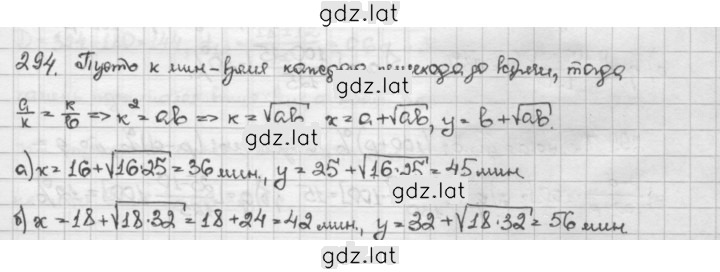 gdz.lat
294. Пусть к мин-время каждого пешехода до встречи, тогда
gdz.lat
a/к = к/b ⇒ к² = ab ⇒ к = √ab x = a + √ab, y = b + √ab.
gdz.lat
а) x = 16 + √16·25 = 36 мин., y = 25 + √16·25 = 45 мин.
gdz.lat
б) x = 18 + √18·32 = 18 + 24 = 42 мин., y = 32 + √18·32 = 56 мин
gdz.lat